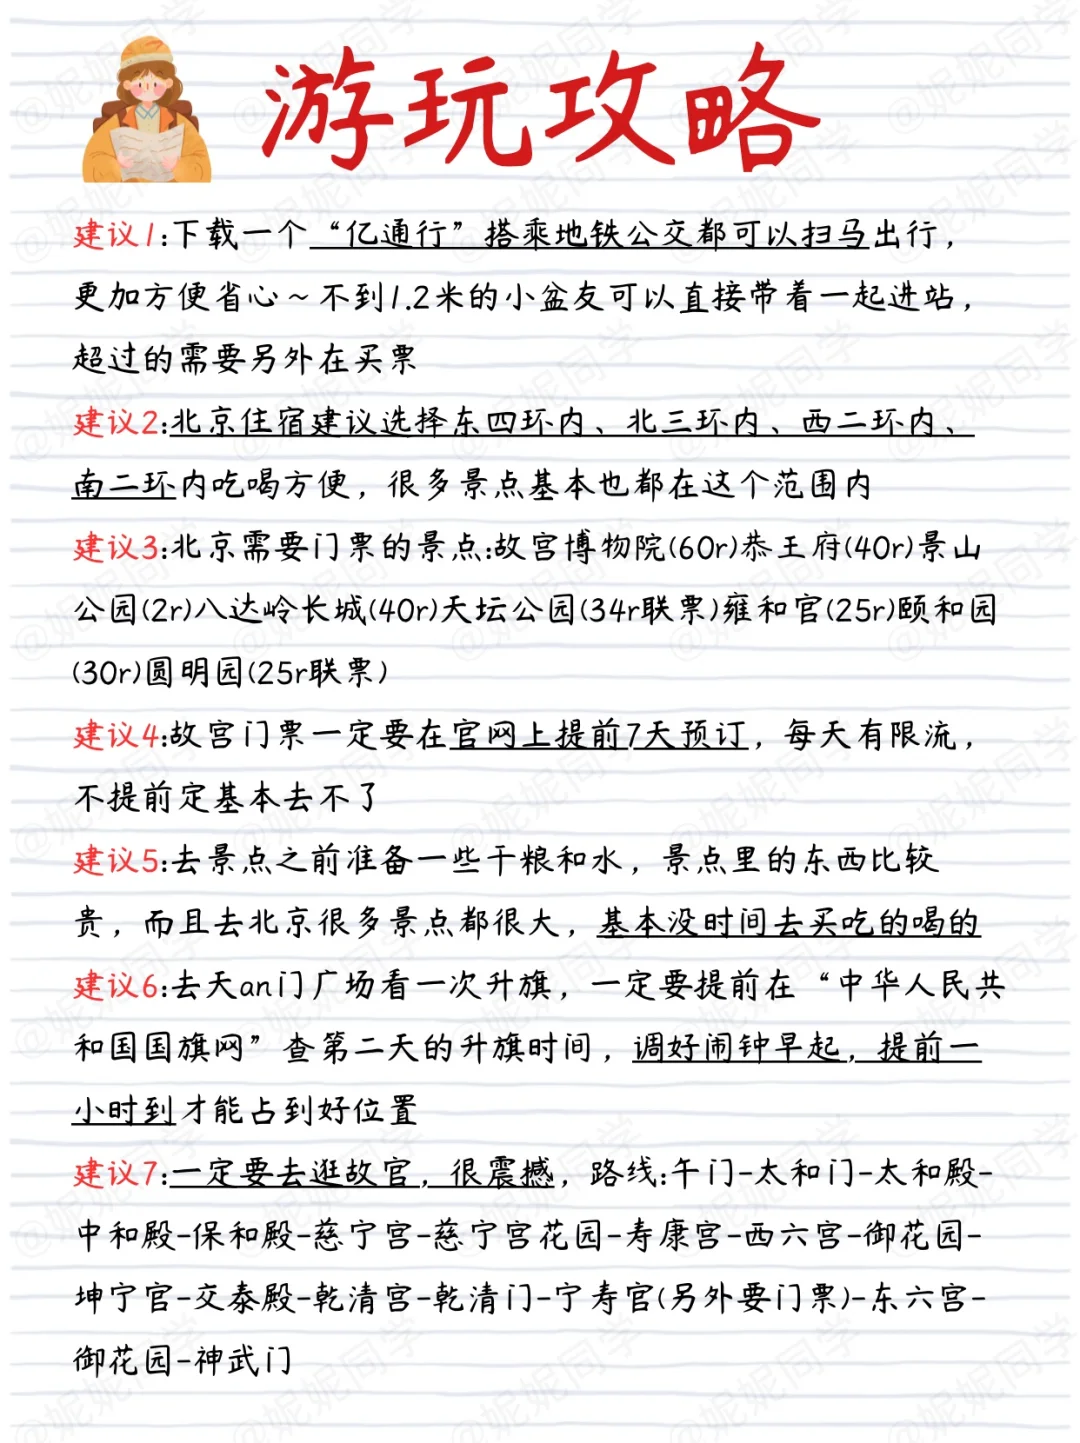 游玩攻略
建议1:下载一个“亿通行”搭乘地铁公交都可以扫马出行，
更加方便省心～不到1.2米的小盆友可以直接带着一起进站，
超过的需要另外在买票
建议2:北京住宿建议选择东四环内、北三环内、西二环内、
南二环内吃喝方便，很多景点基本也都在这个范围内
建议3:北京需要门票的景点:故宫博物院(60r)恭王府(40r)景山
公园(2r)八达岭长城(40r)天坛公园(34r联票)雍和宫(25r)颐和园
(30r)圆明园(25r联票)
建议4:故宫门票一定要在官网上提前7天预订，每天有限流，
不提前定基本去不了
建议5:去景点之前准备一些干粮和水，景点里的东西比较
贵，而且去北京很多景点都很大，基本没时间去买吃的喝的
建议6:去天an门广场看一次升旗，一定要提前在“中华人民共
和国国旗网”查第二天的升旗时间，调好闹钟早起，提前一
小时到才能占到好位置
建议7:一定要去逛故宫，很震撼，路线:午门-太和门-太和殿-
中和殿-保和殿-慈宁宫-慈宁宫花园-寿康宫-西六宫-御花园-
坤宁宫-交泰殿-乾清宫-乾清门-宁寿宫(另外要门票)-东六宫-
御花园-神武门
@妮妮同学